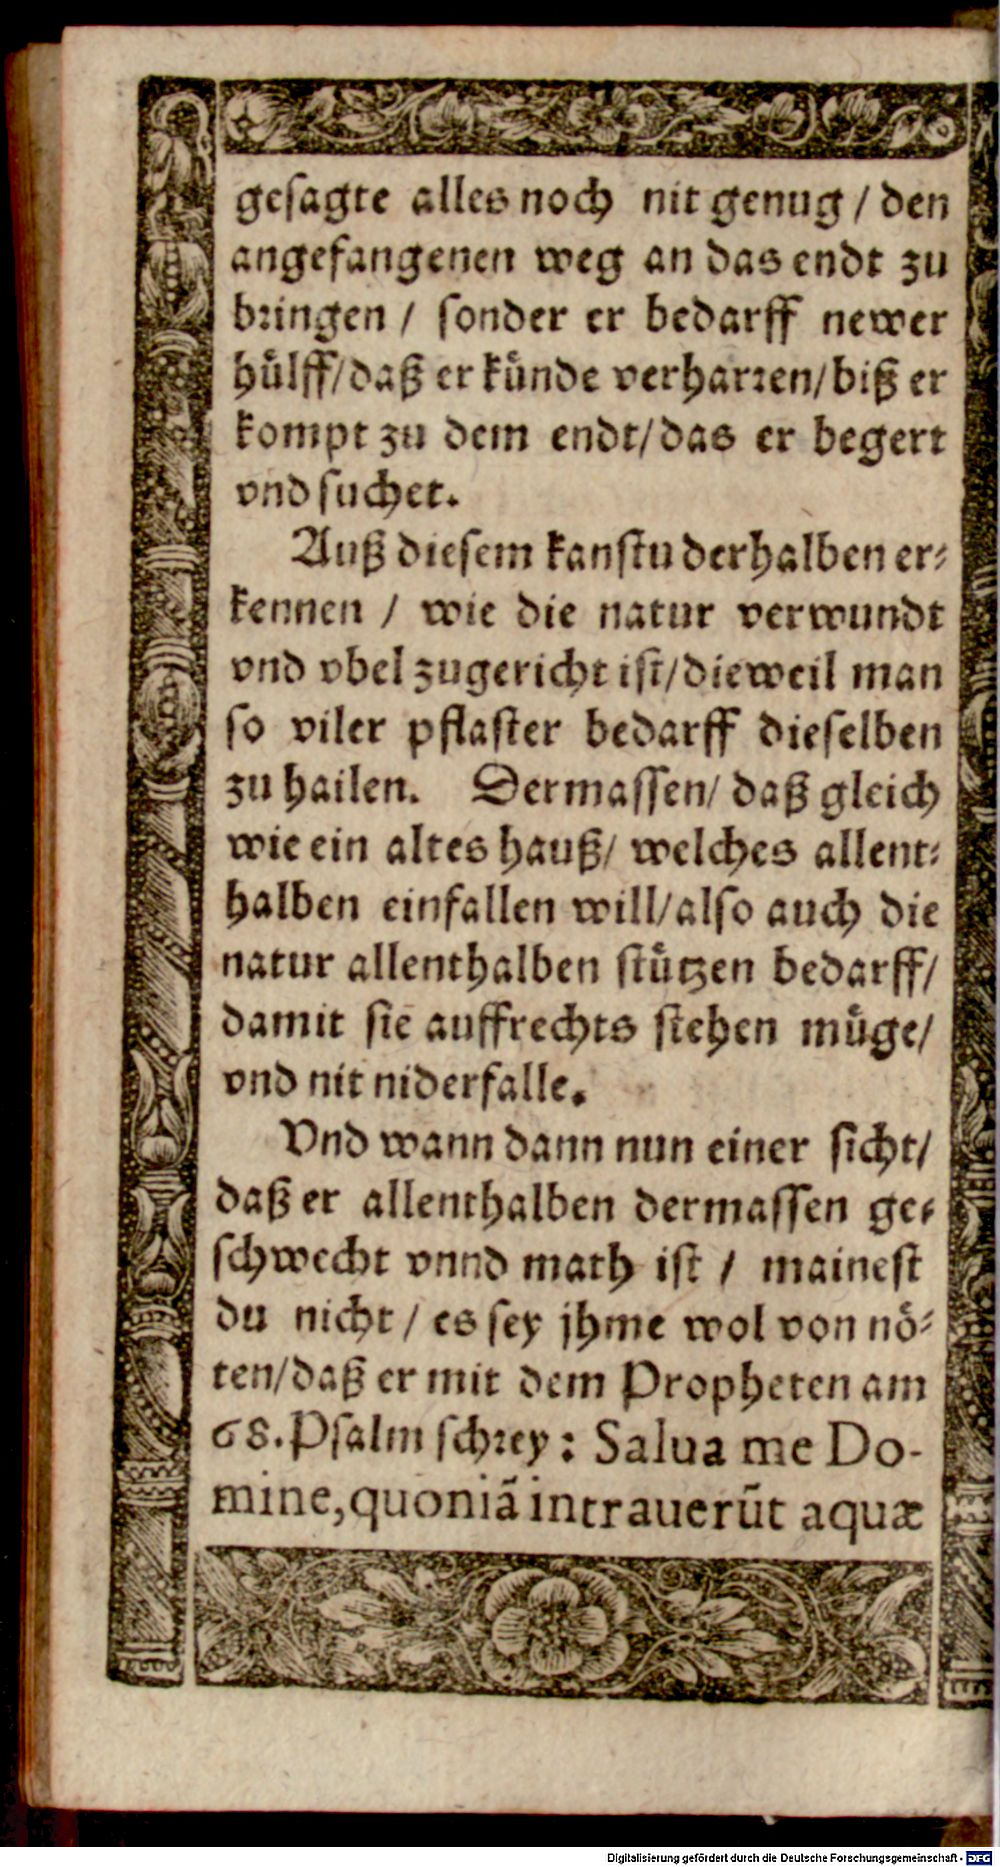 gesagte alles noch nit genug / den
angefangenen weg an das endt zu
bringen / sonder er bedarff newer
hülff/daß er künde verharren/biß er
kompt zu dem endt/das er begert
vnd suchet.
Auß diesem kanstu derhalben er-
kennen / wie die natur verwundt
vnd vbel zugericht ist/dieweil man
so viler pflaster bedarff dieselben
zu hailen. Dermassen/ daß gleich
wie ein altes hauß/ welches allent-
halben einfallen will/also auch die
natur allenthalben stützen bedarff/
damit sie auffrechts stehen müge/
vnd nit niderfalle.
Vnd wann dann nun einer sicht/
daß er allenthalben dermassen ge-
schwecht vnnd math ist / mainest
du nicht / es sey jhme wol von nö-
ten/daß er mit dem Propheten am
68. Psalm schrey : Salua me Do-
mine, quoniã intrauerũt aquæ
Digitalisierung gefördert durch die Deutsche Forschungsgemeinschaft - DFG